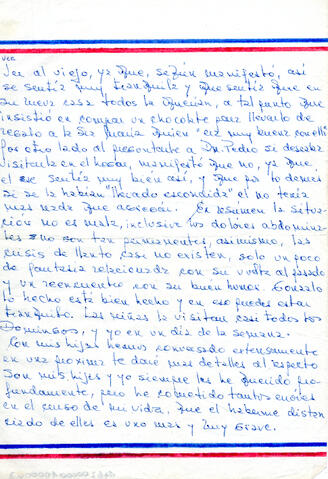 ver al viejo, ya que, según manifestó, así
se sentía muy tranquila y que sentía que en
su nueva casa todos la querían, a tal punto que
insistió en comprar un chocolate para llevarlo de
regalo a la Sra María quien "era muy buena con ella"
por otro lado al preguntarle a Dn. Pedro si deseaba
visitarla en el hogar, manifestó que no, ya que
el se sentía muy bien así, y que por lo demás
si se la habían "llevado escondida" el no tenía
mas nada que agregar. En resumen la situa-
ción no es mala, inclusive los dolores abdomina-
les no son tan permanentes, asimismo, las
crisis de llanto casi no existen, solo un poco
de fantasía relacionada con su vuelta al pasado
y un reencuentro con su buen humor. Gonzalo
lo hecho está bien hecho y en eso puedes estar
tranquilo. Las niñas la visitan casi todos los
Domingos, y yo en un día de la semana.
Con mis hijas hemos conversado extensamente
en una próxima te daré mas detalles al respecto
Son mis hijas y yo siempre las he querido pro-
fundamente, pero he cometido tantos errores
en el curso de mi vida, que el haberme distan-
ciado de ellas es uno mas y muy grave.